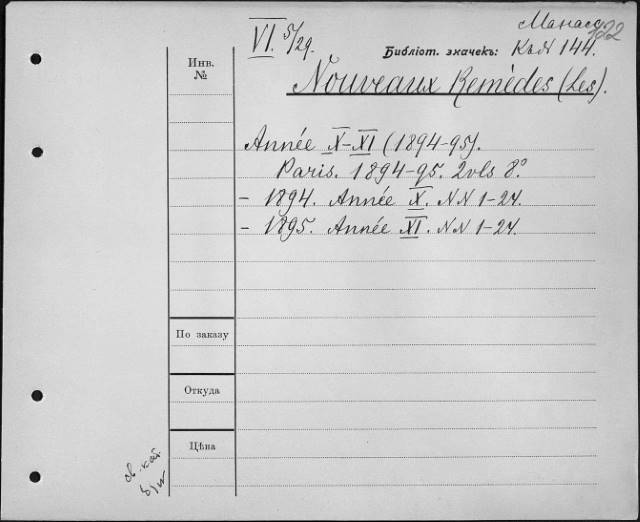 VI. 5/29.
122
Библіот. значекъ: К.ѣ.N 144.
Инв.
№
Nouveaux Remèdes (Les).
Année X-XI (1894-95).
Paris. 1894-95. 2 vls 8º
- 1894. Année X. NN 1-24.
- 1895. Année XI. NN 1-24.
По заказу
Откуда
Цѣна